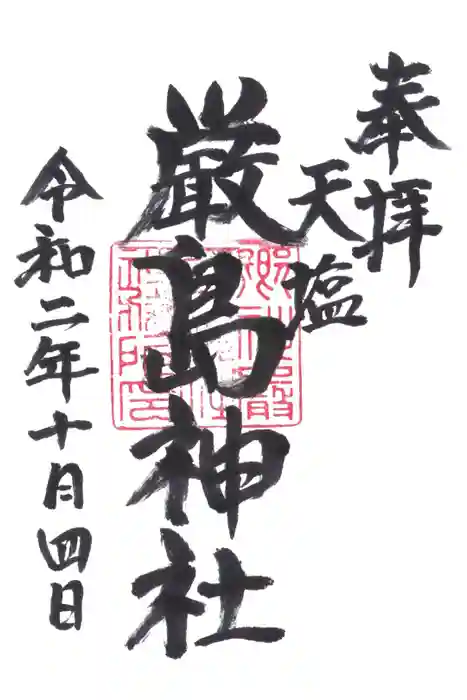 奉拝
天塩
厳島神社
令和二年十月四日